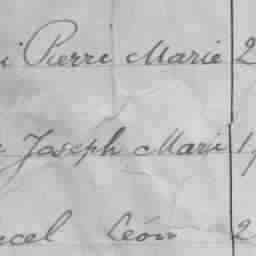 i Pierre Marie 2
Joseph Marie 1
cel León 2